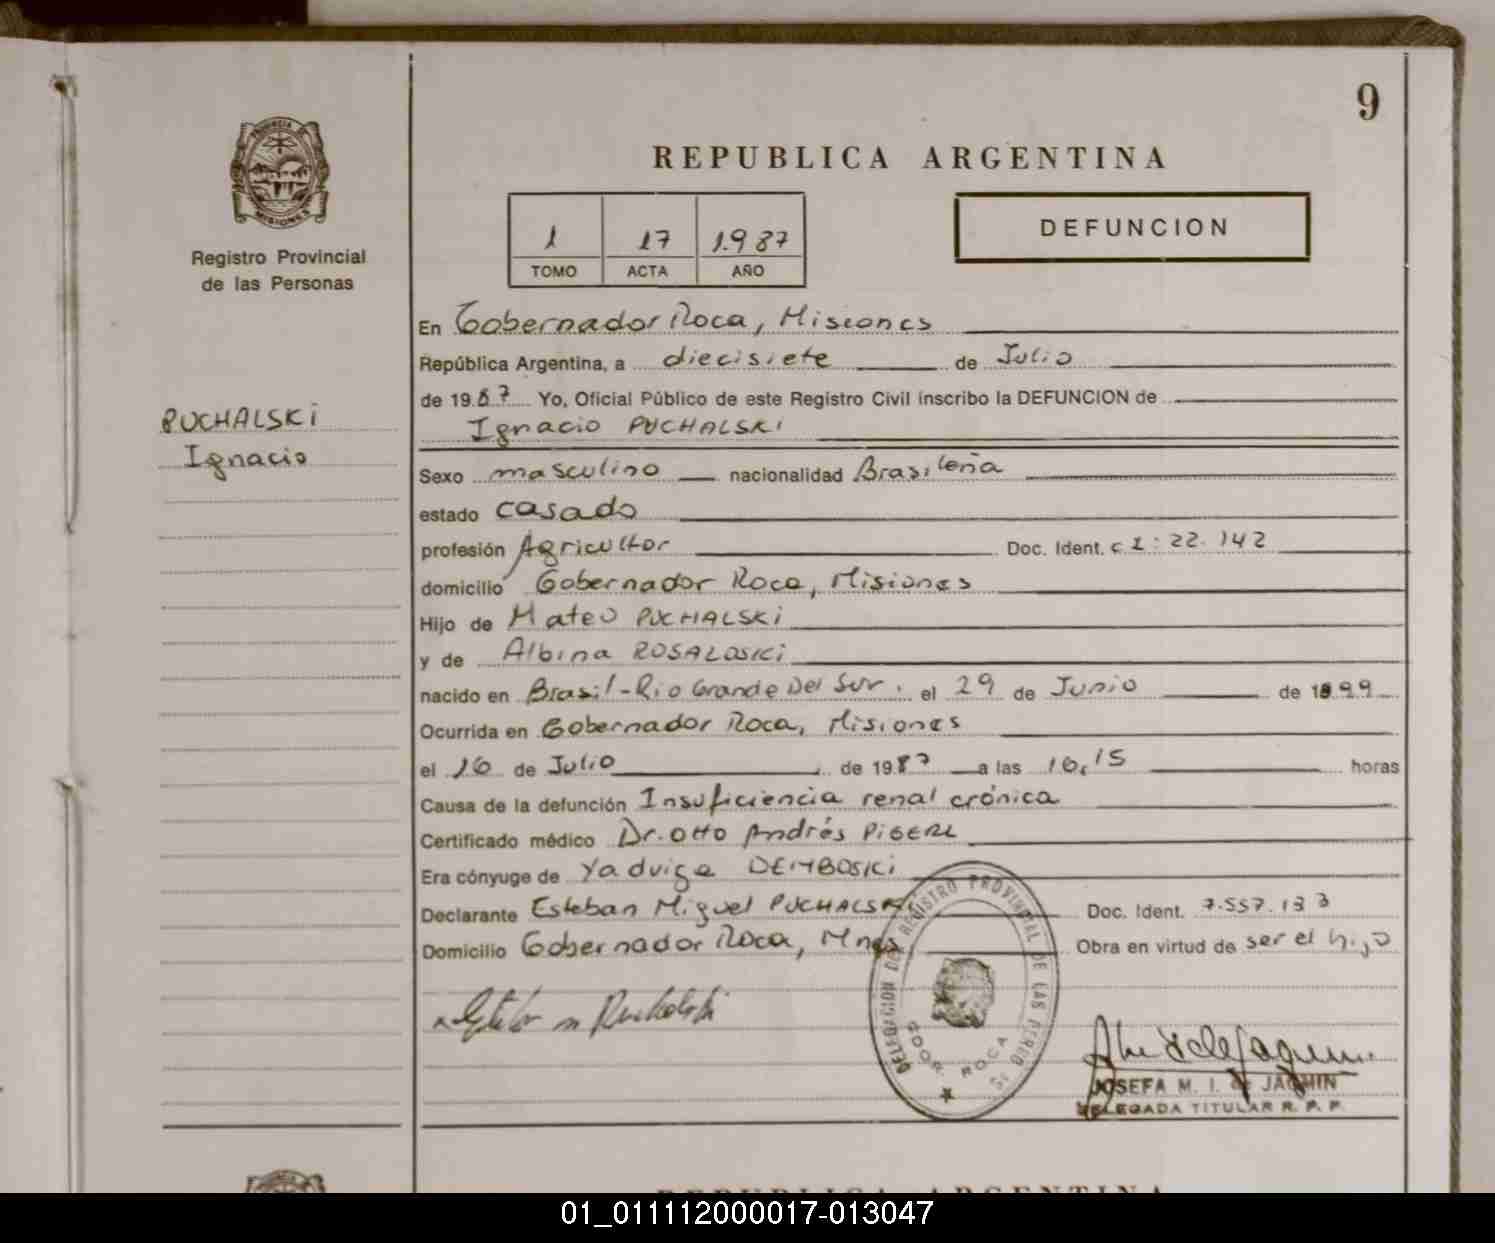 9
REPUBLICA ARGENTINA
PROVINCIA DE
MISIONES
Registro Provincial
de las Personas
1 17 1.987
TOMO ACTA AÑO
DEFUNCION
PUCHALSKI
Ignacio
En Gobernador Roca, Misiones
República Argentina, a diecisiete de Julio
de 1987 Yo, Oficial Público de este Registro Civil inscribo la DEFUNCION de
Ignacio PUCHALSKI
Sexo masculino nacionalidad Brasileña
estado casado
profesión Agricultor Doc. Ident. C.I: 22.142
domicilio Gobernador Roca, Misiones
Hijo de Mateo PUCHALSKI
y de Albina ROSALOSKI
nacido en Brasil-Rio Grande Del Sur. el 29 de Junio de 1899
Ocurrida en Gobernador Roca, Misiones
el 16 de Julio de 1987 a las 16,15 horas
Causa de la defunción Insuficiencia renal crónica
Certificado médico Dr. Otto Andrés PIGERL
Era cónyuge de Yadviga DEMBOSKI
Declarante Esteban Miguel PUCHALSKI Doc. Ident. 7.557.133
Domicilio Gobernador Roca, Mnes Obra en virtud de ser el hijo
DELEGACION DEL REGISTRO PROVINCIAL DE LAS PERSO
GDOR. ROCA
JOSEFA M. I. de JACHIN
DELEGADA TITULAR R. P. P.
REPUBLICA ARGENTINA
01_011112000017-013047